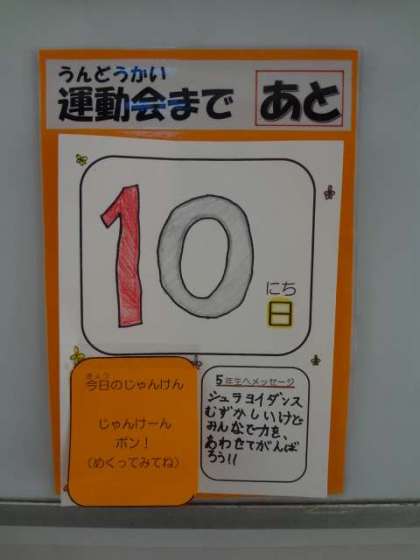 うんどうかい
運動会まで あと
10
にち
日
きょう
今日のじゃんけん
じゃんけーん
ポン！
（めくってみてね）
5年生へメッセージ
ジュラヨイダンス
むずかしいけど
みんなで力を、
あわせてがんば
ろう!!